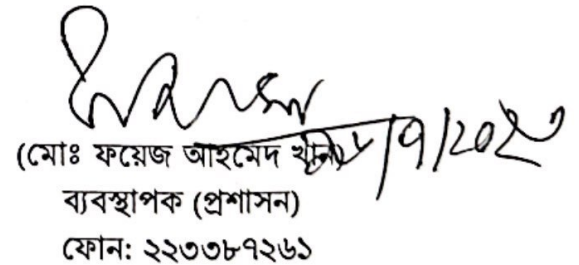 (মোঃ ফয়েজ আহমেদ খান)
ব্যবস্থাপক (প্রশাসন)
ফোন: ২২৩৩৮৭২৬১